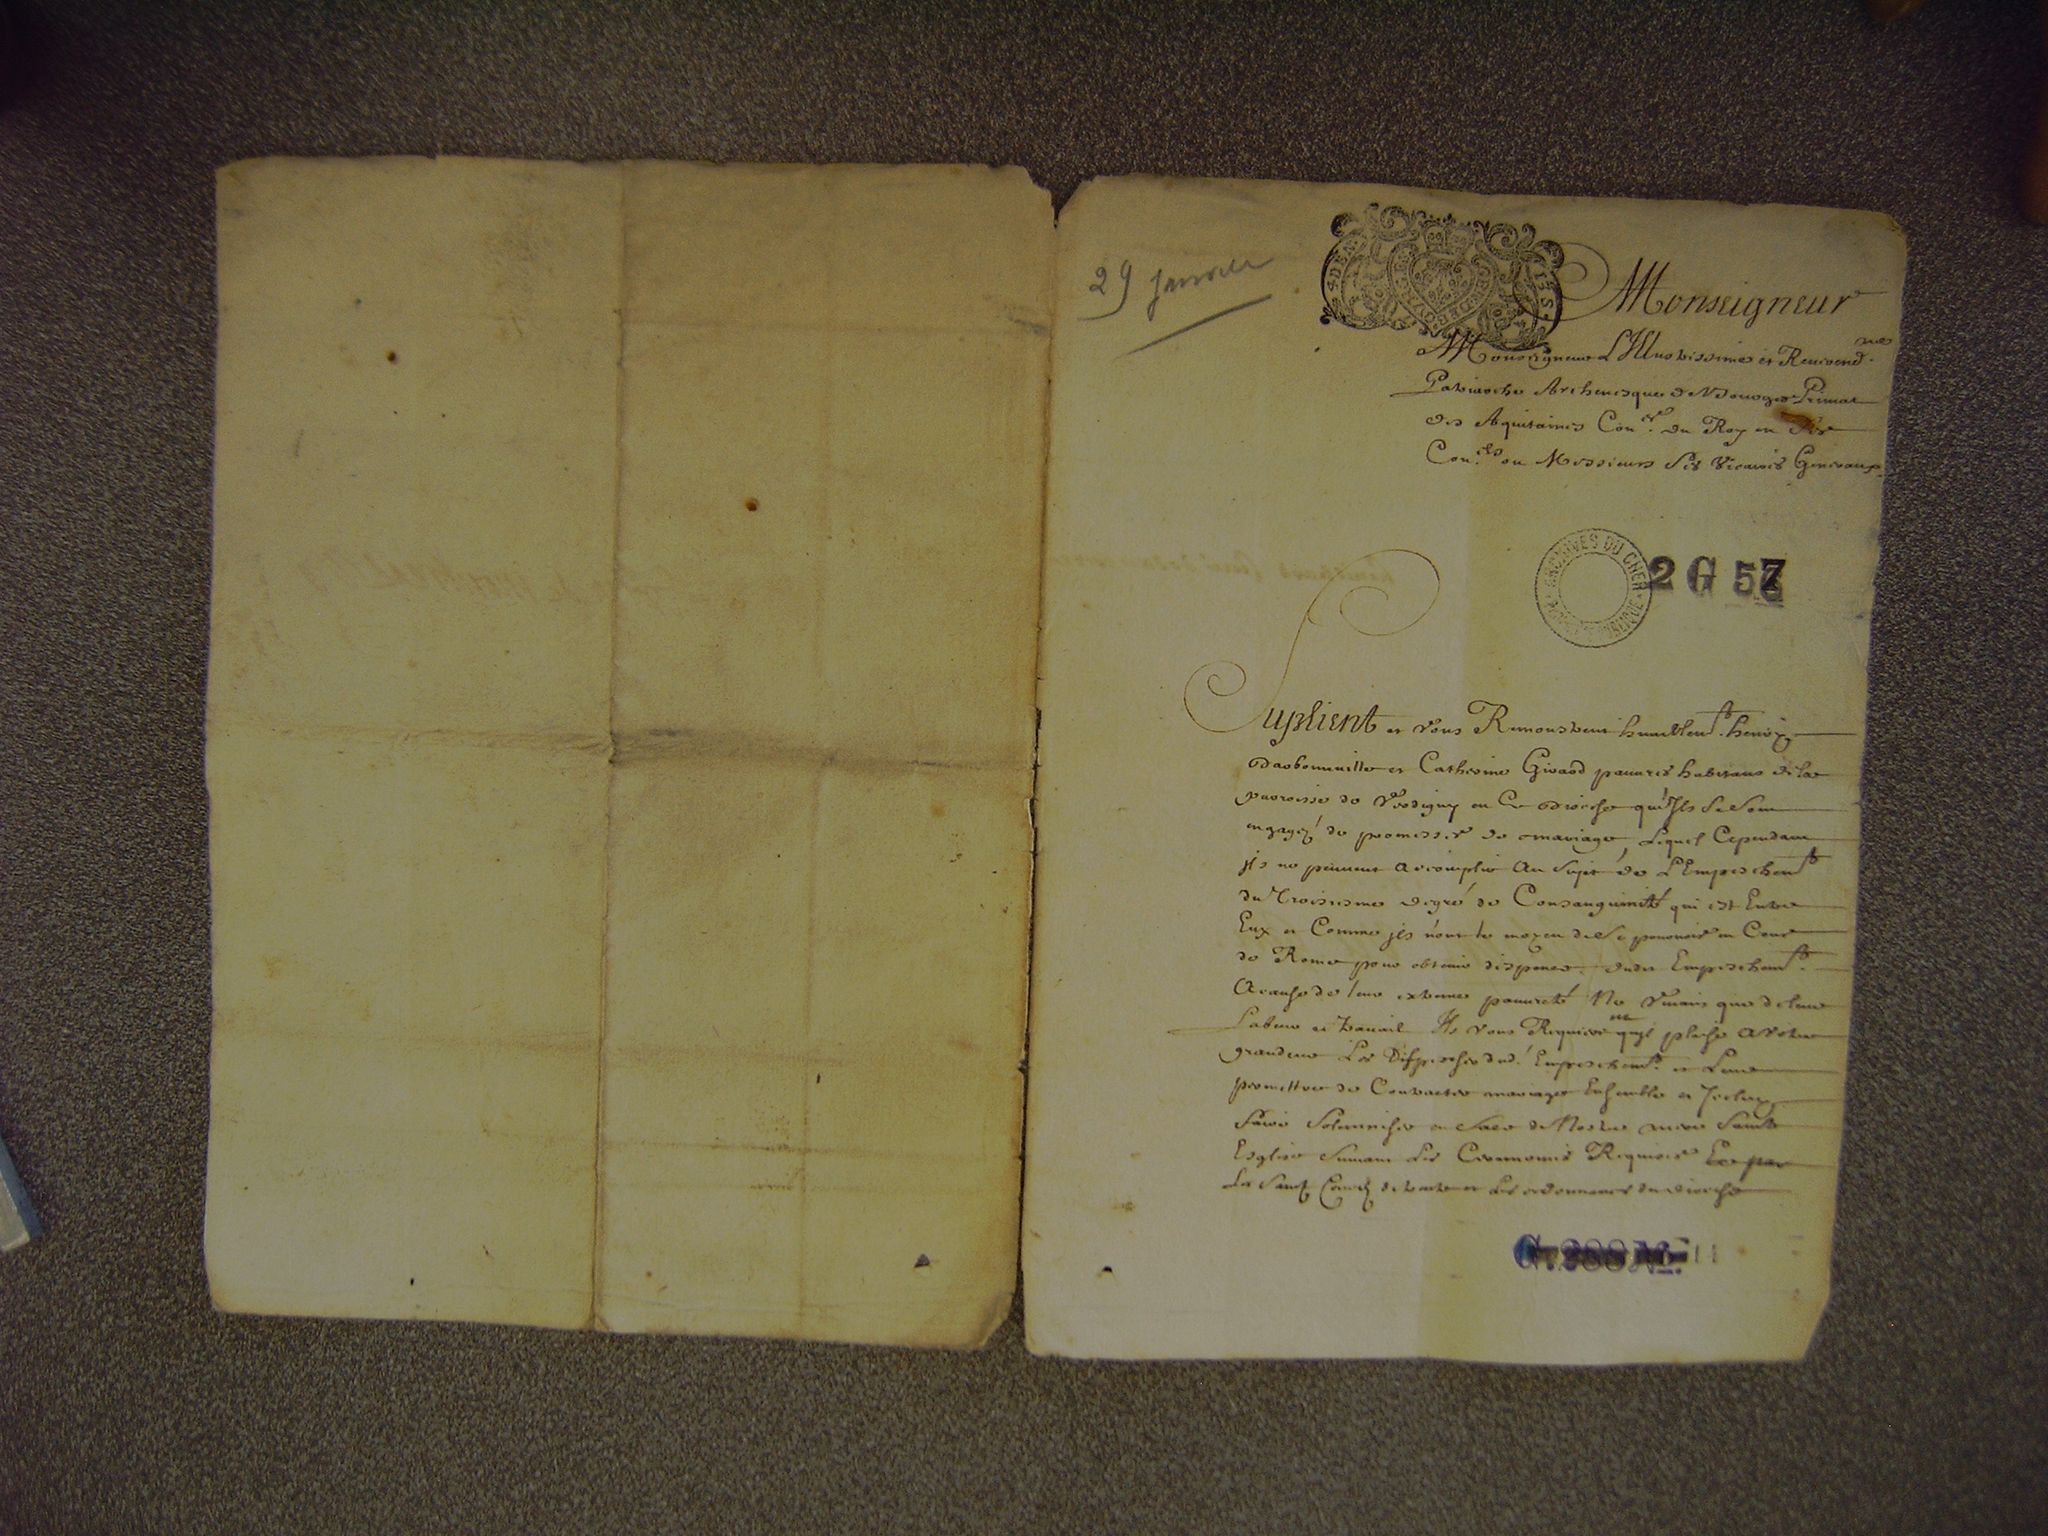 29 janvier
Monseigneur
Monseigneur L'Illustrissime et Reuerend.me
Patriarche Archeuesque de Bourges Primat
des Aquitaines Con.er du Roy en Ses
Con.els ou Messieurs Ses Vicaires Generaux
ARCHIVES DU CHER
2 G 57
Suplient et Vous Remonstrent humblem.t henry
Darbonuille et Catherine Girard pauures habitans de la
parroisse de Verdigny en Ce diocese qu'Ils Se Sont
engagez de promesses de mariage, Lequel Cependant
jls ne peuuent accomplir au Sujet de L'Empeschem.t
du Troisiesme degré de Consanguinité qui est Entre
Eux et Comme jls n'ont le moyen de Se pouruoir en Cour
de Rome pour obtenir dispence dudit Empeschem.t
A cause de leur extreme pauureté Ne Viuans que de leur
Labeur et trauail Ils vous Requierent qu'Il plaise a Votre
grandeur Les Dispenser dud. Empeschem.t et Leur
permettre de Contracter mariage Ensemble et Jceluy
faire Solemniser en face de Nostre mere Sainte
Esglise Suiuant Les Ceremonies Requises Et par
Le Saint Concil de trante et Les ordonnances du diocese
G. 288 No. 11